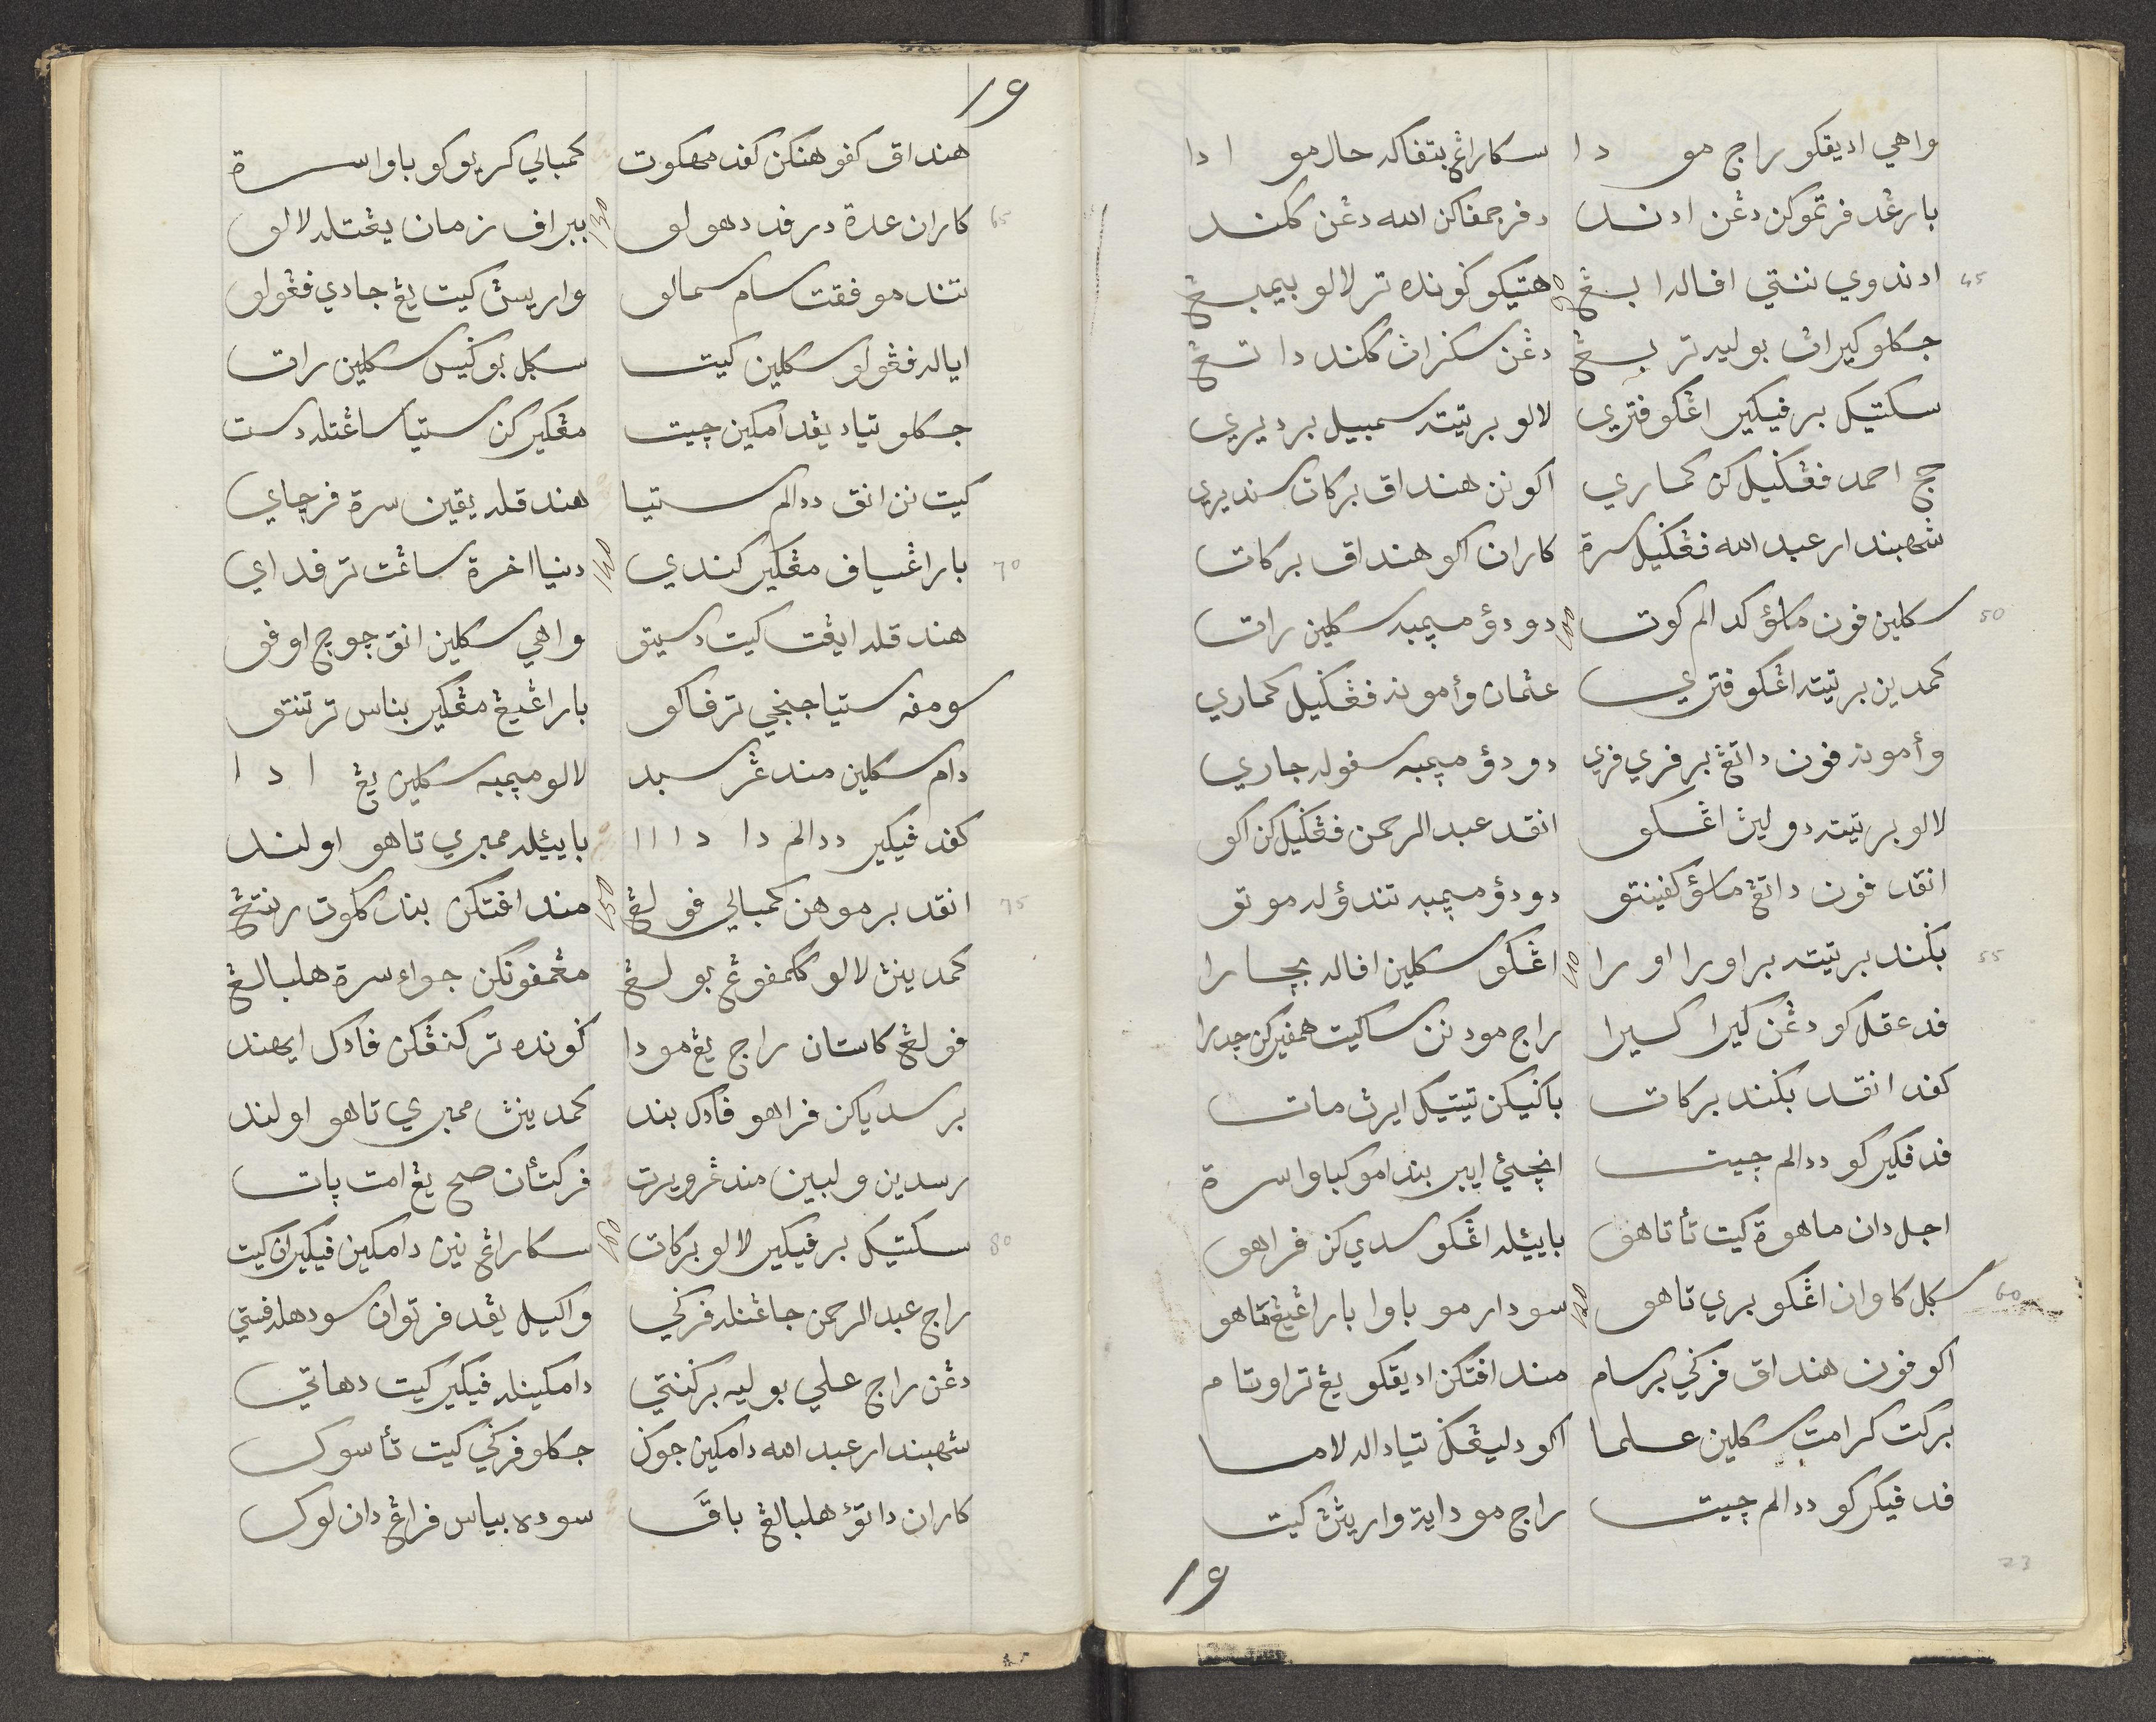 واهي اديقكو راج مودا سكارڠ بتفاكه حالمو ادا
بارڠد فرتموكن دڠن ادند دفرجمفاكن الله دڠن ككند
45 ادندوي ننتي افاله ابڠ 90 هتيكو ݢونده ترلالو بيمبڠ
جكلو كيراث بوليه تربڠ دڠن سكراڠ ككند داتڠ
سكتيك برفيكير اڠكو فتري لالو برتيته سمبيل برديري
حج احمد فڠݢيل كن كماري اكو نن هنداق بركات سنديري
شهبندار عبد الله فڠݢيل سرة كاران اكو هنداق بركات
50 سكلين فون ماسؤ كدالم كوت 100 دودؤ مڽمبه سكلين رات
كمدين برتيته اڠكو فتري عثمان وأمونه فڠݢيل كماري
وأمونه فون داتڠ برفري فري دودؤ مڽمبه سفوله جاري
لالو برتيته دوليث اڠكو انقد عبد الرحمن فڠݢيل كن اكو
انقد فون داتڠ ماسؤ كفينتو دودؤ مڽمبه تندؤله موتو
55 بݢند برتيته براورا اورا 110 اڠكو سكلين افاله بچارا
فد عقلكو دڠن كيرا كسيرا راج مود نن ساكيت همفيركن چدرا
كفد انقد بݢند بركات باݢيكن تيتيك ايرث مات
فد فكيركو ددالم چيت انچئ ايبر بندامو كباوا سرة
اجل دان ماهوة كيت تأتاهو باييئله اڠكو سدي كن فراهو
60 سكل كاوان اڠكو بري تاهو 120 سودارمو باوا باراڠيڠ تاهو
اكو فون هنداق فرݢي برسام مند افتكن اديقكو يڠ تراوتام
بركت كرامت سكلين علما اكو دليڠكڠ تياداله لاما
فد فيكركو ددالم چيت راج مودايه واريثث كيت
19
23
19
هنداق كفوهنكن كفد مهكوت كمبالي كريوكو باوا سرة
65 كاران عدة درفد دهولو 130 ببراف زمان يڠتله لالو
تند موفقت سام سمالو واريسث كيت يڠ جادي فڠولو
اياله فڠولو سكلين كيت سكل بوݢيس سكلين رات
جكلو تياد يڠد امكين چيت مڠكيركن ستيا ساڠتله دست
كيت نن انق ددالم ستيا هندقله يقين سرة فرچاي
70 باراڠسياف مڠكير كندي 140 دنيا اخرة ساڠت ترفداي
هندقله ايڠت كيت دسيتو واهي سكلين انق چوچ اوفو
سومفه ستيا جنجي ترفاكو باراڠيڠ مڠكير بناس ترتنتو
دام سكلين مندڠر سبد لالو مڽمبه سكلين يڠ ادا
كفد فيكير ددالم دادا باييئله ممبري تاهو اولند
75 انقد برموهن كمبالي فولڠ 150 مند افتكن بند كلوت رنتڠ
كمدينث لالو ككمفوڠ بولڠ مڠمفونكن جواء سرة هلبالڠ
فولڠ كاستان راج يڠ مودا ݢونده ترkنڠكن فادك ايهند
برسدياكن فراهو فادك بند كمدينث ممبري تاهو اولند
رسدين ولبين مندڠر ورت فركتأن صح يڠ امت ڽات
80 سكتيك برفيكير لالو بركات 160 سكاراڠ نين دامكين فيكيران كيت
راج عبد الرحمن جاڠنله فرݢي واكيل يڠد فرتوان سودهله فستي
دڠن راج علي بوليه برݢنتي دامكينله فيكير كيت دهاتي
شهبندار عبد الله دامكين جوݢ جكلو فرݢي كيت تأسوك
كاران داتؤ هلبالڠ باݢ سوده بياس فراڠ دان لوك